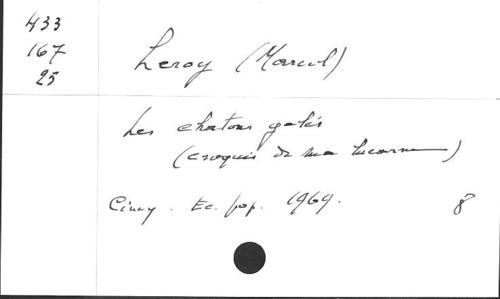 433
167
25
Leroy (Marcel)
Les chatons gelés
(croquis de ma lucarne)
Ciney. Ec. pop. 1969.
8